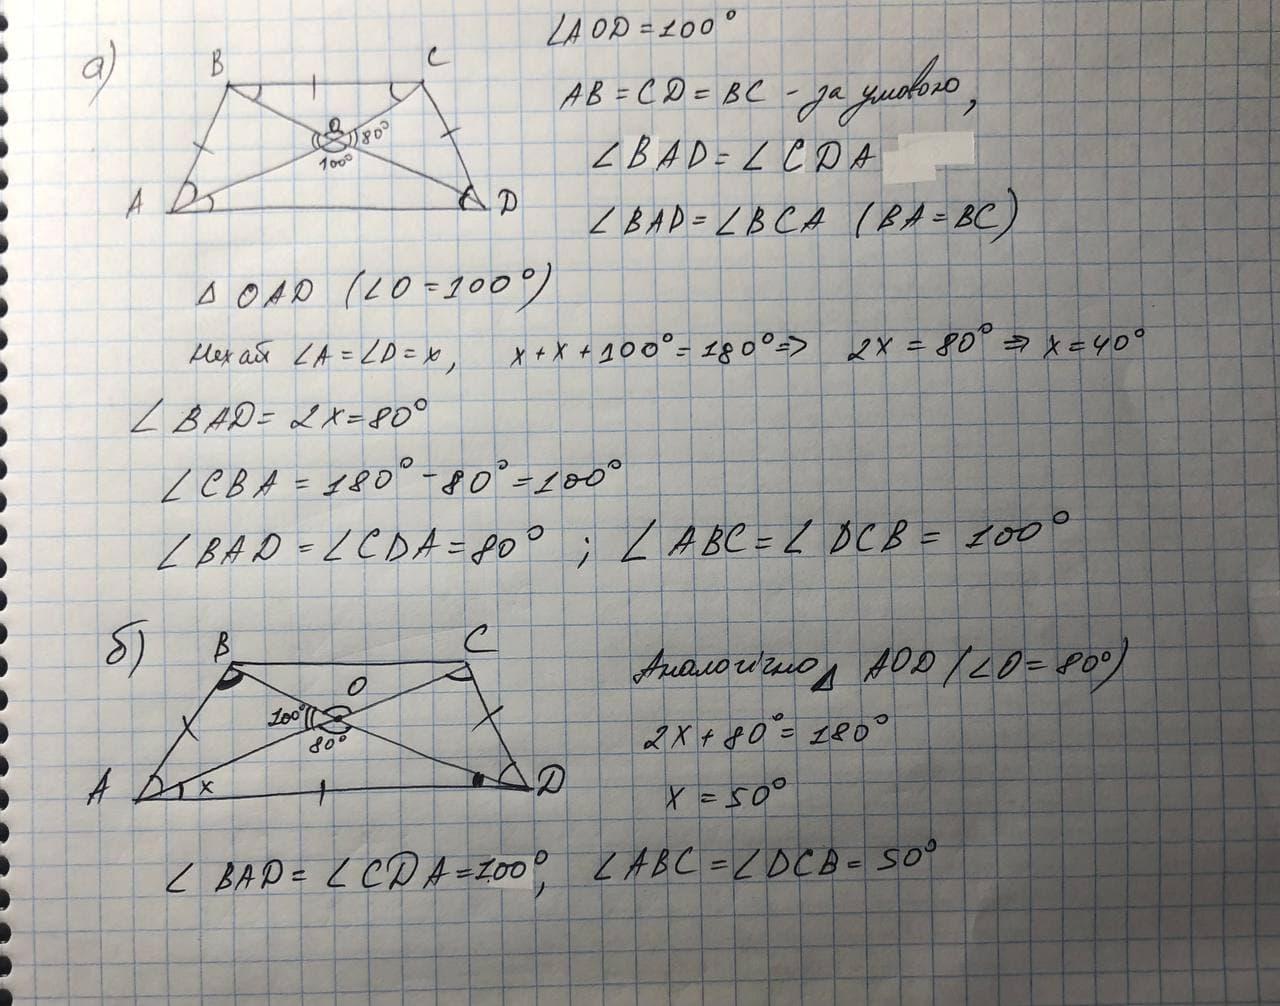 а)
B C
O
80°
100°
A D
∠AOD = 100°
AB = CD = BC - за умовою,
∠BAD = ∠CDA
∠BAD = ∠BCA (BA = BC)
△ OAD (∠O = 100°)
Нехай ∠A = ∠D = x, x + x + 100° = 180° => 2x = 80° => x = 40°
∠BAD = 2x = 80°
∠CBA = 180° - 80° = 100°
∠BAD = ∠CDA = 80° ; ∠ABC = ∠DCB = 100°
б)
B C
O
100°
80°
A x D
Аналогічно △ AOD (∠O = 80°)
2x + 80° = 180°
x = 50°
∠BAD = ∠CDA = 100°, ∠ABC = ∠DCB = 50°